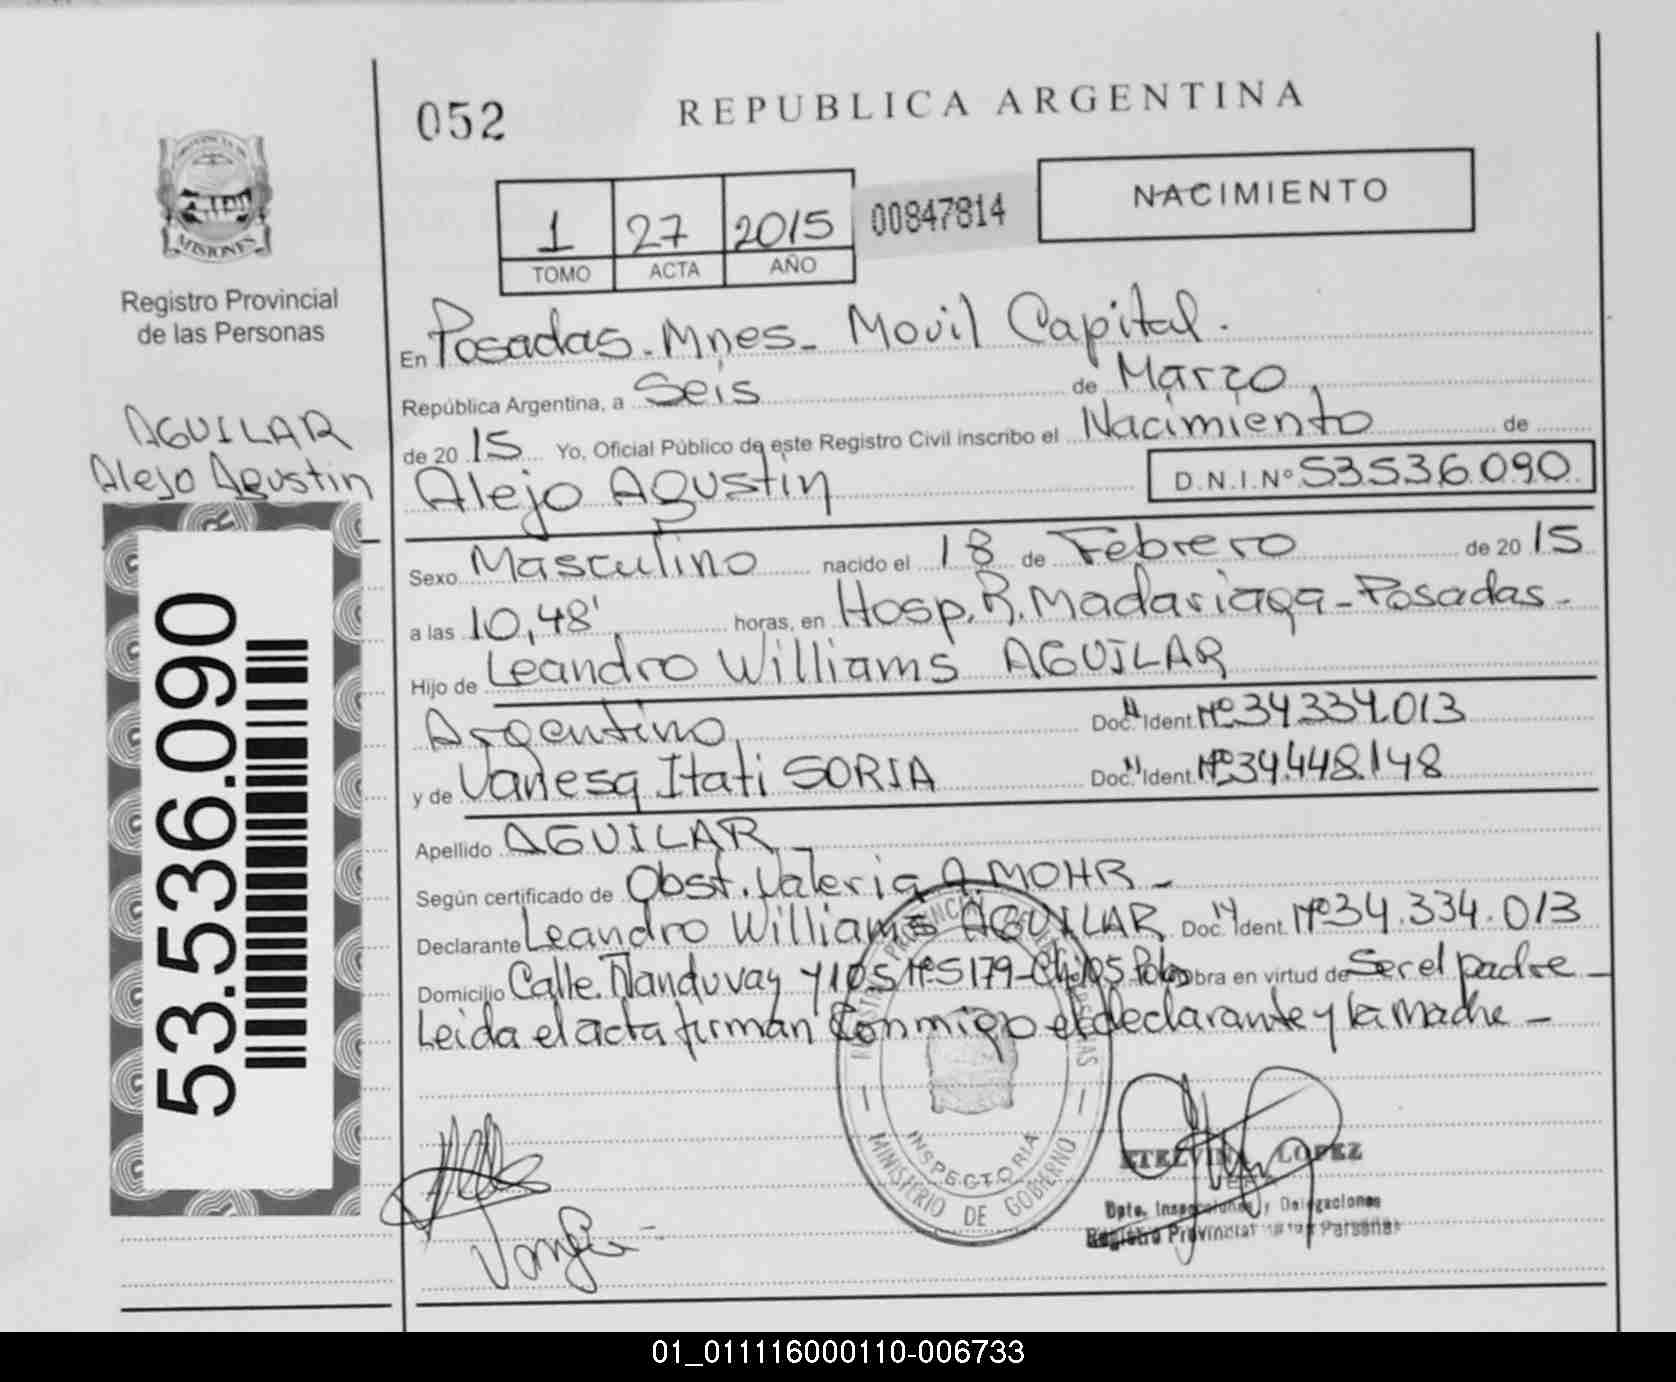 052
REPUBLICA ARGENTINA
PROVINCIA DE
MISIONES
Registro Provincial
de las Personas
1 27 2015
TOMO ACTA AÑO
00847814
NACIMIENTO
AGUILAR
Alejo Agustin
53.536.090
En Posadas - Mnes - Movil Capital.
República Argentina, a Seis de Marzo,
de 2015 Yo, Oficial Público de este Registro Civil inscribo el Nacimiento de
Alejo Agustin D.N.I.Nº 53.536.090
Sexo Masculino nacido el 18 de Febrero de 2015
a las 10,48' horas, en Hosp. R. Madariaga - Posadas -
Hijo de Leandro Williams AGUILAR
Argentino Doc. Ident. Nº 34.334.013
y de Vanesa Itati SORIA Doc. Ident. Nº 34.448.148
Apellido AGUILAR -
Según certificado de Obst. Valeria A. MOHR -
Declarante Leandro Williams AGUILAR Doc. Ident. Nº 34.334.013
Domicilio Calle. Ñanduvay y 105 Nº 5179 - obra en virtud de Ser el padre -
Leida el acta firman Conmigo el declarante y la madre -
INSPECTORIA
MINISTERIO DE GOBIERNO
ETELVINA LOPEZ
Dpto. Inspecciones y Delegaciones
Registro Provincial de las Personas
01_011116000110-006733